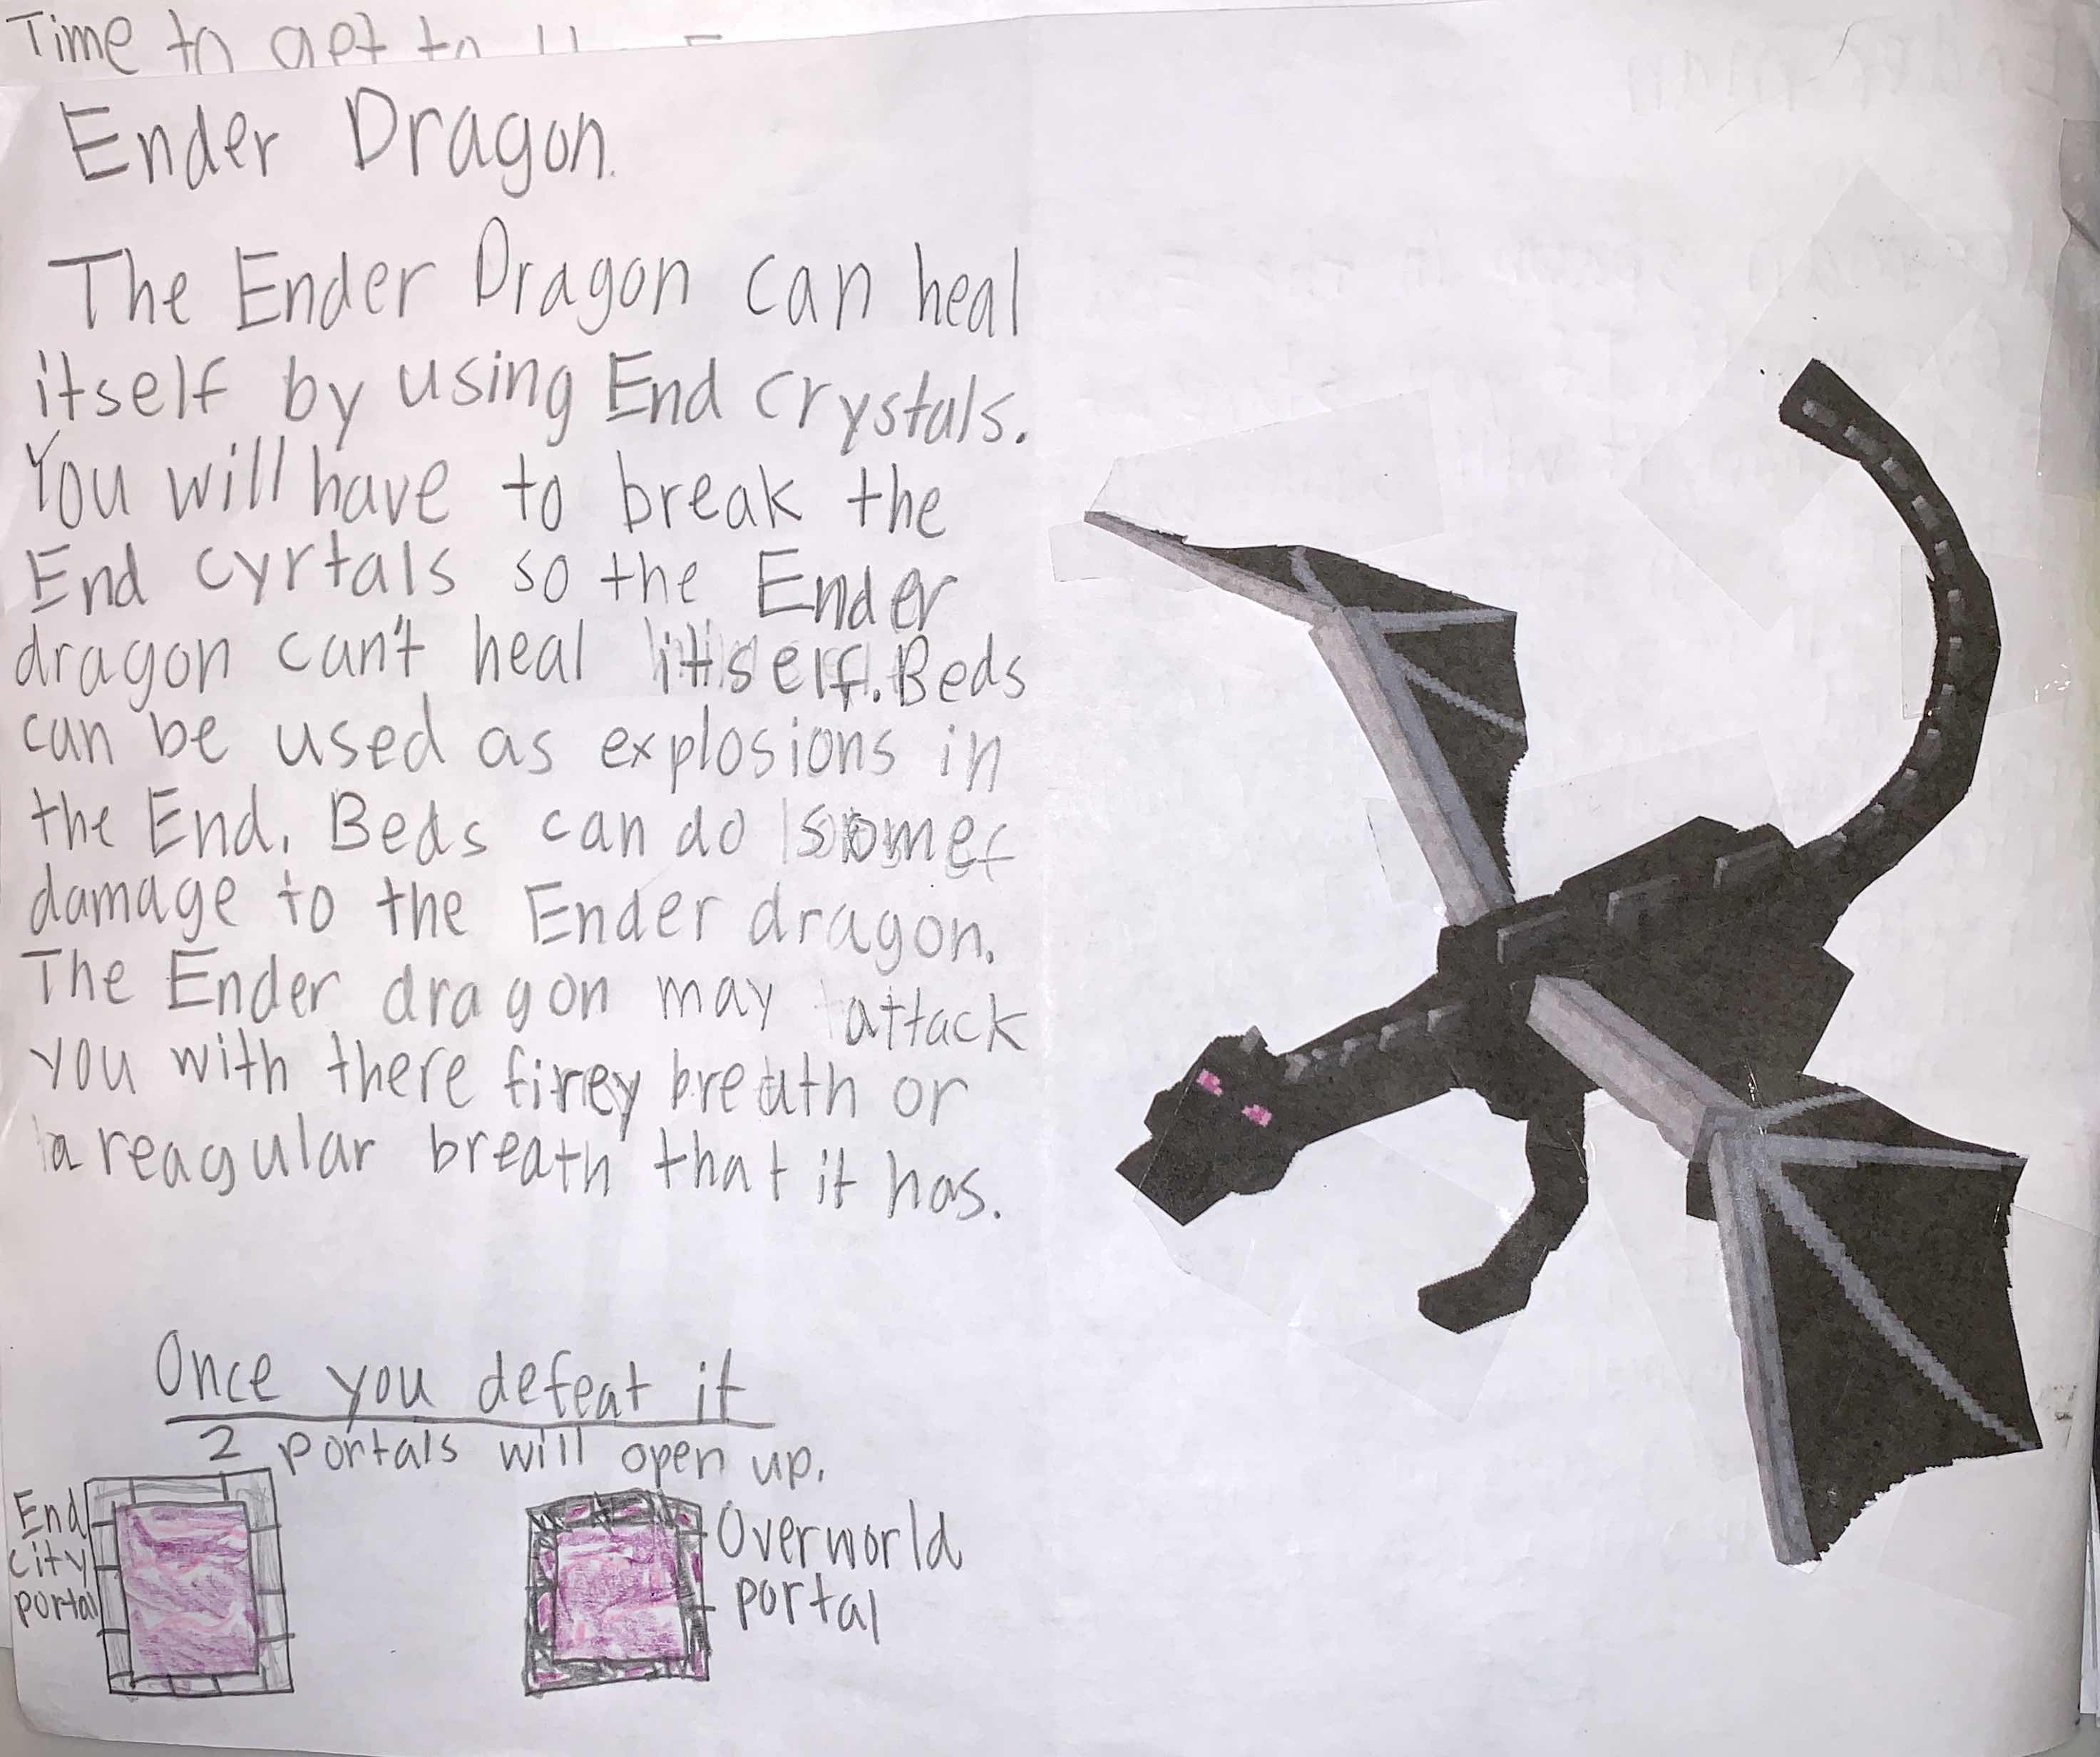 Time to get to
Ender Dragon.
The Ender Dragon can heal
itself by using End crystals.
You will have to break the
End cyrtals so the Ender
dragon can't heal itself. Beds
can be used as explosions in
the End. Beds can do some
damage to the Ender dragon.
The Ender dragon may attack
you with there firey breath or
a reagular breath that it has.
Once you defeat it
2 portals will open up.
End
city
portal
Overworld
portal